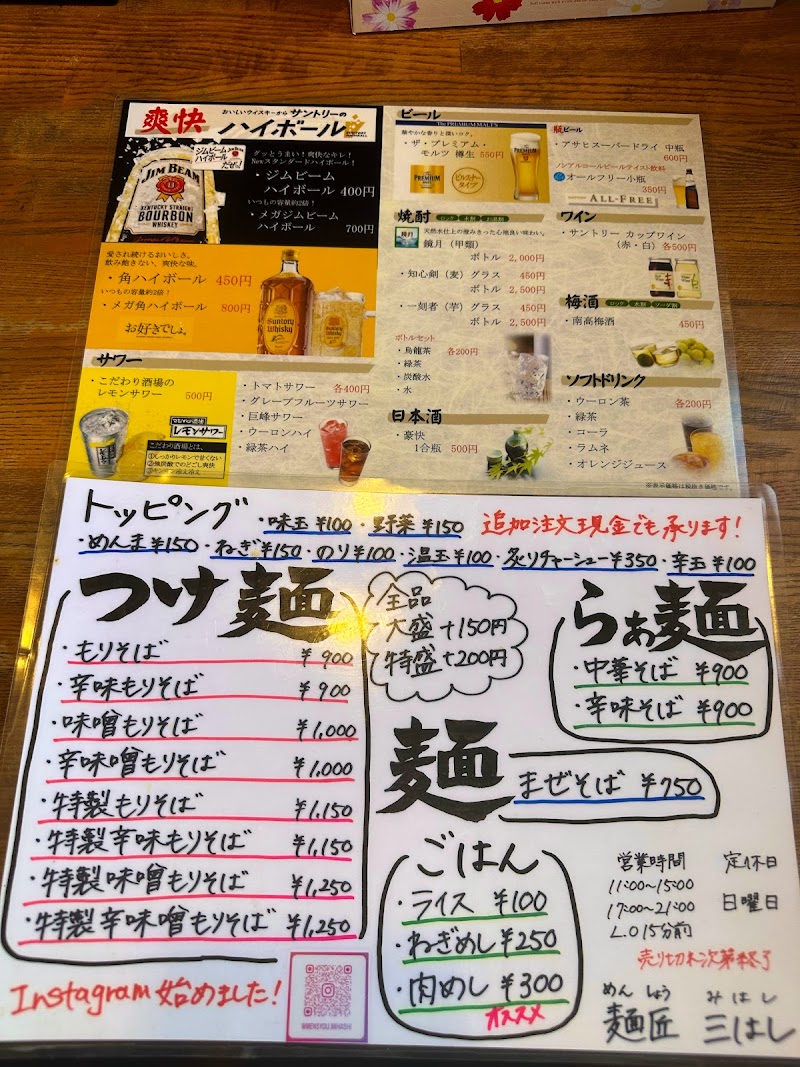 爽快
おいしいウイスキーから サントリーの
ハイボール
ジムビーム
ハイボール
だぜっ!
JIM BEAM
KENTUCKY STRAIGHT
BOURBON
WHISKEY
グッとうまい!爽快なキレ!
Newスタンダードハイボール!
・ジムビーム
ハイボール 400円
いつもの容量約2倍!
・メガジムビーム
ハイボール 700円
愛され続けるおいしさ。
飲み飽きない、爽快な味。
・角ハイボール 450円
いつもの容量約2倍!
・メガ角ハイボール 800円
お好きでしょ。
Suntory
Whisky
サワー
・こだわり酒場の
レモンサワー 500円
レモンサワー
こだわり酒場とは、
①しっかりレモンで甘くない
・トマトサワー 各400円
・グレープフルーツサワー
・巨峰サワー
・ウーロンハイ
・緑茶ハイ
ビール
The PREMIUM MALT'S
華やかな香りと深いコク。
・ザ・プレミアム・
モルツ 樽生 550円
ピルスナー
タイプ
瓶ビール
・アサヒスーパードライ 中瓶
600円
ノンアルコールビールテイスト飲料
オールフリー小瓶
350円
ALL-FREE
焼酎
ロック 水割 お湯割
天然水仕上の澄みきった心地良い味わい。
鏡月(甲類)
ボトル 2,000円
・知心剣(麦)グラス 450円
ボトル 2,500円
・一刻者(芋)グラス 450円
ボトル 2,500円
ボトルセット
・烏龍茶 各200円
・緑茶
・炭酸水
・水
日本酒
・豪快
1合瓶 500円
ワイン
・サントリー カップワイン
(赤・白) 各500円
梅酒
ロック 水割 ソーダ割
・南高梅酒 450円
ソフトドリンク
・ウーロン茶 各200円
・緑茶
・コーラ
・ラムネ
・オレンジジュース
※表示価格は税抜き価格です。
トッピング
・味玉 ¥100 ・野菜 ¥150 追加注文現金でも承ります!
・めんま¥150 ・ねぎ¥150 ・のり¥100 ・温玉¥100 ・炙りチャーシュー¥350 ・辛玉¥100
つけ麺
・もりそば ¥900
・辛味もりそば ¥900
・味噌もりそば ¥1,000
・辛味噌もりそば ¥1,000
・特製もりそば ¥1,150
・特製辛味もりそば ¥1,150
・特製味噌もりそば ¥1,250
・特製辛味噌もりそば ¥1,250
全品
大盛+150円
特盛+200円
らぁ麺
・中華そば ¥900
・辛味そば ¥900
麺
まぜそば ¥750
ごはん
・ライス ¥100
・ねぎめし ¥250
・肉めし ¥300
オススメ
営業時間
11:00~15:00
17:00~21:00
L.O 15分前
定休日
日曜日
売り切れ次第終了
めんしょう みはし
麺匠 三はし
Instagram 始めました!
@MENSYOU.MIHASHI